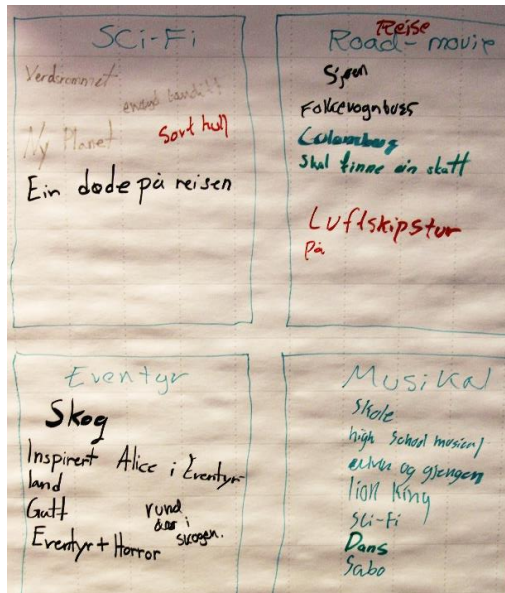 Sci-Fi
Verdsrommet
Ny Planet
Sort hull
Ein døde på reisen
Reise
Road-movie
Sjøen
Folkevognbuss
Skal finne ein skatt
Luftskipstur
på
Eventyr
Skog
Inspirert Alice i Eventyr-
land
Gutt
rund
i
skogen.
Eventyr + Horror
Musikal
Skole
high School musical
og gjengen
lion King
Sci-Fi
Dans
Sabo